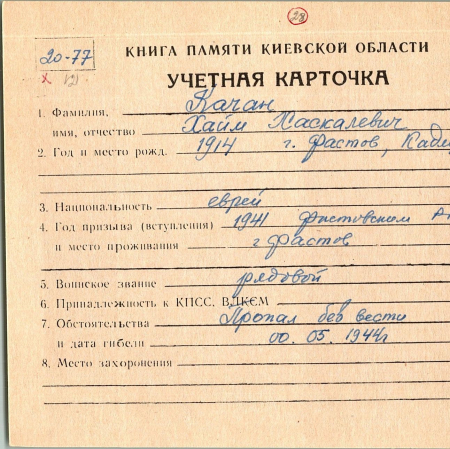 28
20-77
х 121
КНИГА ПАМЯТИ КИЕВСКОЙ ОБЛАСТИ
УЧЕТНАЯ КАРТОЧКА
1. Фамилия, Качан
имя, отчество Хаим Хаскалевич
2. Год и место рожд. 1914 г. Фастов,
3. Национальность еврей
4. Год призыва (вступления) 1941 Фастовским
и место проживания г Фастов
5. Воинское звание рядовой
6. Принадлежность к КПСС, ВЛКСМ
7. Обстоятельства Пропал без вести
и дата гибели 00. 05. 1944г
8. Место захоронения